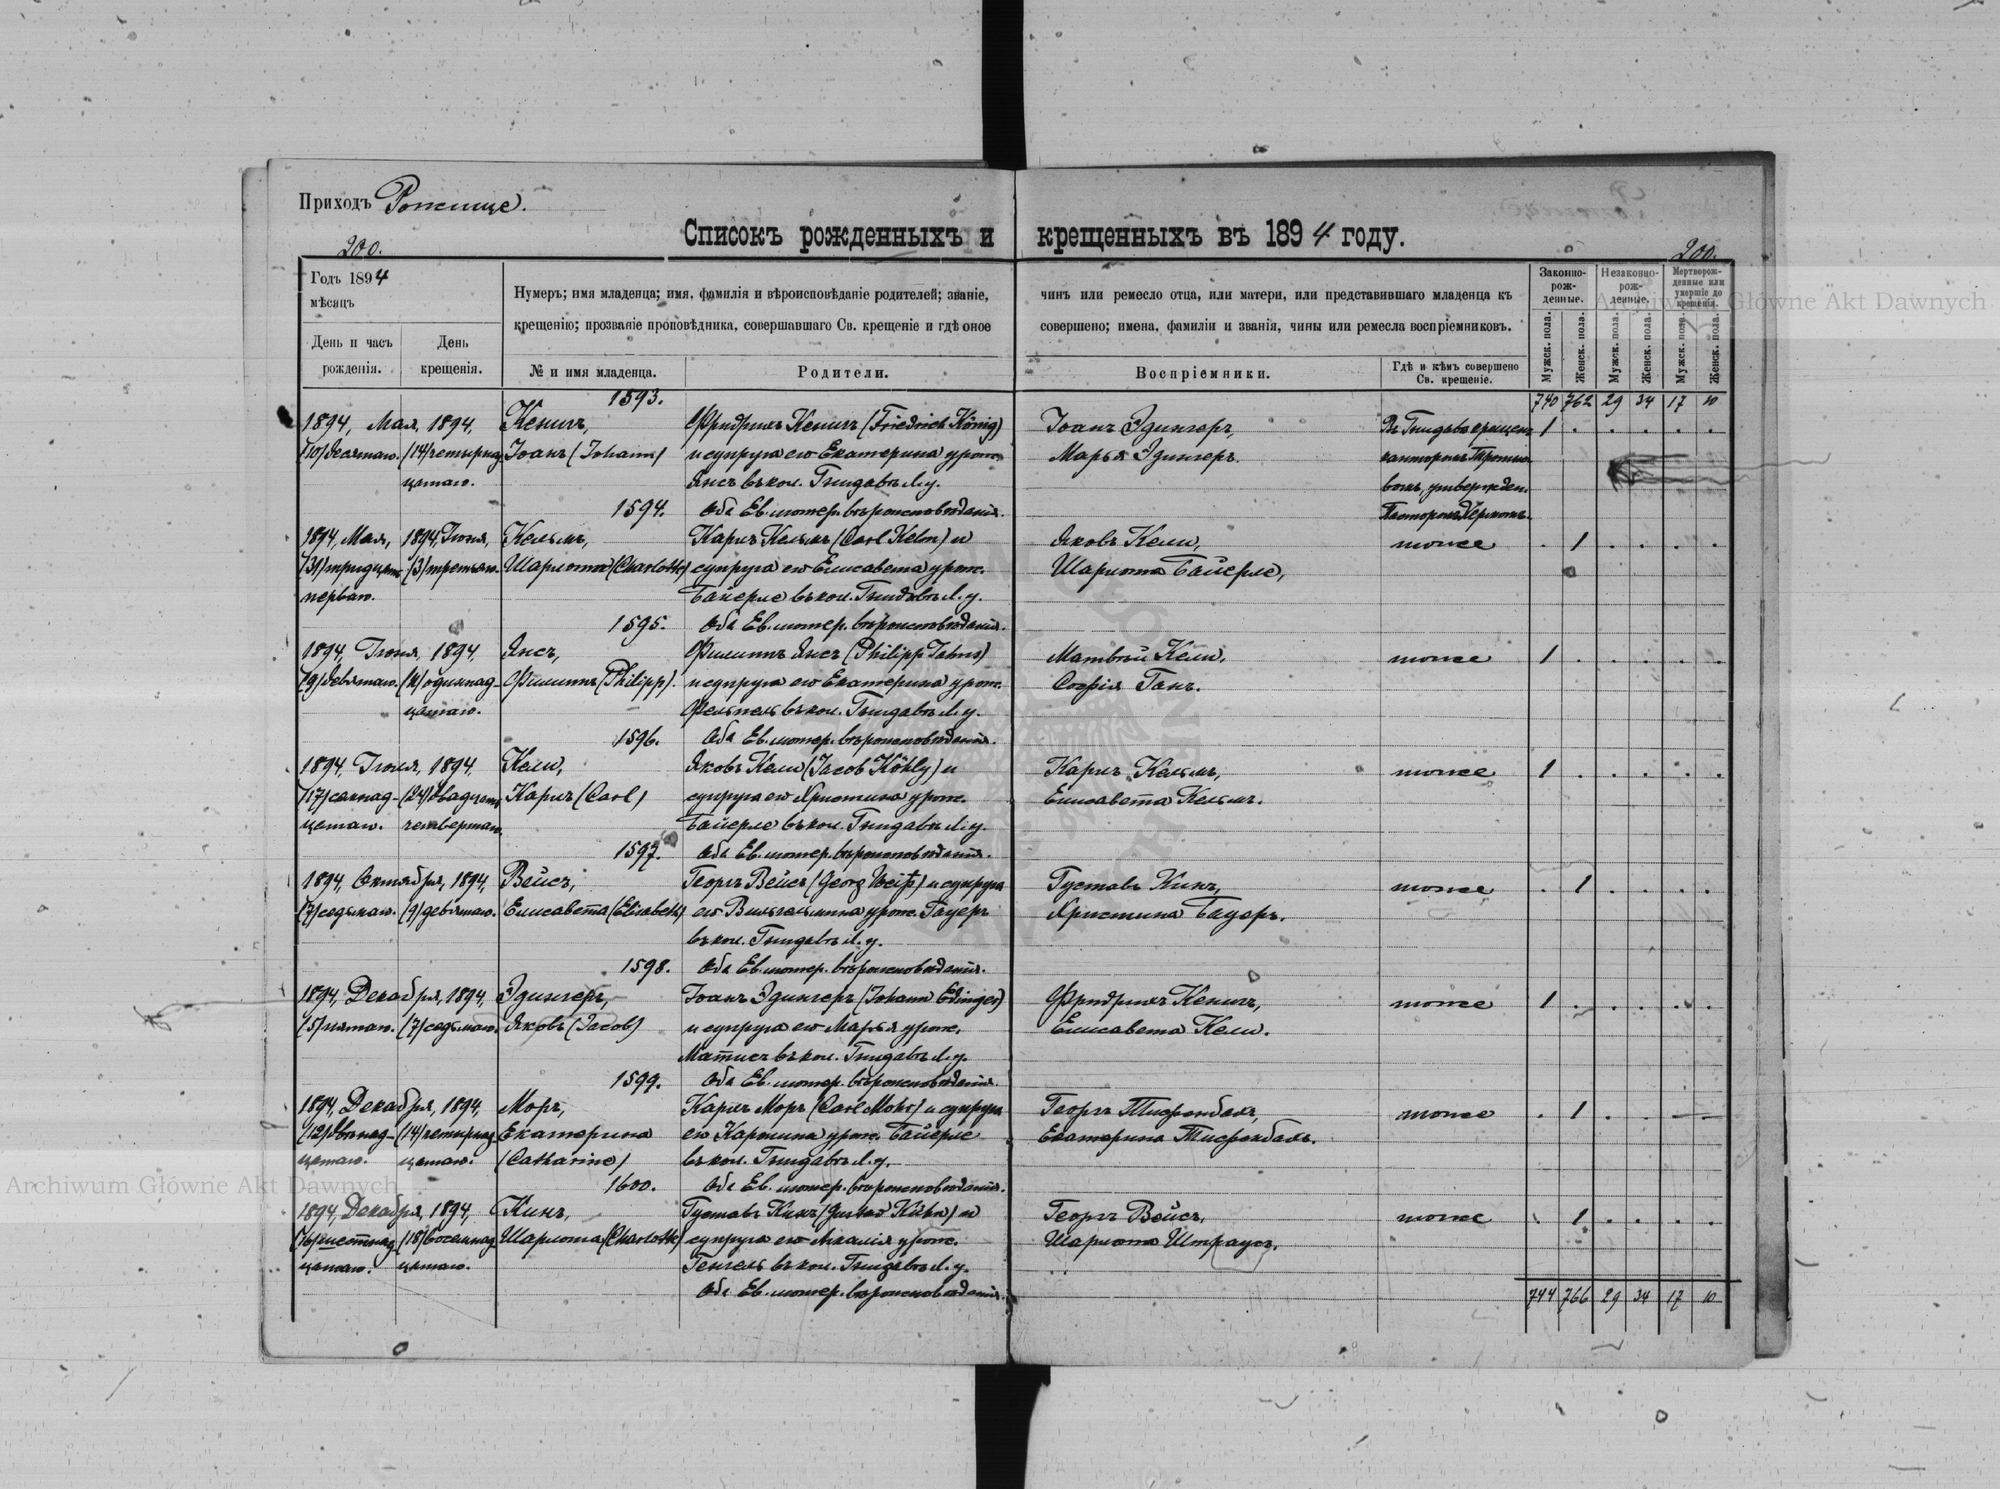 Приходъ Рожище.
200.
Списокъ рожденныхъ и крещенныхъ въ 1894 году.
200.
Годъ 1894
мѣсяцъ
День и часъ рожденія.
День крещенія.
Нумеръ; имя младенца; имя, фамилія и вѣроисповѣданіе родителей; званіе, чинъ или ремесло отца, или матери, или представившаго младенца къ
крещенію; прозваніе проповѣдника, совершавшаго Св. крещеніе и гдѣ оное совершено; имена, фамиліи и званія, чины или ремесла воспріемниковъ.
№ и имя младенца.
Родители.
Воспріемники.
Гдѣ и кѣмъ совершено Св. крещеніе.
Законно-рож-денные.
Незаконно-рож-денные.
Мертворож-денные или умершіе до крещенія.
Мужск. пола.
Женск. пола.
Мужск. пола.
Женск. пола.
Мужск. пола.
Женск. пола.
740 762 29 34 17 10
1593.
1894, Мая, 1894, Кенигъ, Фридрихъ Кенигъ (Friedrich König) Іоанъ Эдингеръ, Въ Гнидавѣ крещенъ 1 . . . . .
(10) десятаго. (14) четырнад- Іоанъ (Johann) и супруга его Екатерина урож. Марья Эдингеръ. канторомъ
цатаго. Янсъ въ кол. Гнидавѣ Л. у. вомъ, утвержден.
1594. Оба Ев. лютер. вѣроисповѣданія. Пасторомъ
1894, Мая, 1894, Іюня, Кельмъ, Карлъ Кельмъ (Carl Kelm) и Яковъ Кели, тоже . 1 . . . .
(31) тридцать (3) третьяго. Шарлота (Charlotte) супруга его Елисавета урож. Шарлота Байерле,
перваго. Байерле въ кол. Гнидавѣ Л. у.
1595. Оба Ев. лютер. вѣроисповѣданія.
1894, Іюня, 1894, Янсъ, Филиппъ Янсъ (Philipp Jahns) Матвѣй Кели, тоже 1 . . . . .
(9) девятаго. (11) одиннад- Филиппъ (Philipp). и супруга его Екатерина урож. Софія Ганъ.
цатаго. Фельпель въ кол. Гнидавѣ Л. у.
1596. Оба Ев. лютер. вѣроисповѣданія.
1894, Іюля, 1894, Кели, Яковъ Кели (Jacob Köhly) и Карлъ Кельмъ, тоже 1 . . . . .
(17) семнад- (24) двадцать Карлъ (Carl) супруга его Христина урож. Елисавета Кельмъ.
цатаго. четвертаго. Байерле въ кол. Гнидавѣ Л. у.
1597. Оба Ев. лютер. вѣроисповѣданія.
1894, Октября, 1894, Вейсъ, Георгъ Вейсъ (Georg Weiß) и супруга Густавъ Кинъ, тоже . 1 . . . .
(7) седьмаго. (9) девятаго. Елисавета (Elisabeth) его Вильгельмина урож. Гауеръ Христина Бауеръ.
въ кол. Гнидавѣ Л. у.
1598. Оба Ев. лютер. вѣроисповѣданія.
1894, Декабря, 1894, Эдингеръ, Іоанъ Эдингеръ (Johann Edinger) Фридрихъ Кенигъ, тоже 1 . . . . .
(5) пятаго. (7) седьмаго. Яковъ (Jacob) и супруга его Марья урож. Елисавета Кели.
Матисъ въ кол. Гнидавѣ Л. у.
1599. Оба Ев. лютер. вѣроисповѣданія.
1894, Декабря, 1894, Моръ, Карлъ Моръ (Carl Mohr) и супруга Георгъ Тифенбахъ, тоже . 1 . . — —
(12) двѣнад- (14) четырнад- Екатерина его Каролина урож. Байерле Екатерина Тифенбахъ.
цатаго. цатаго. (Catharine) въ кол. Гнидавѣ Л. у.
1600. Оба Ев. лютер. вѣроисповѣданія.
1894, Декабря, 1894, Кинъ, Густавъ Кинъ (Gustav Kühn) и Георгъ Вейсъ, тоже . 1 . . . .
(16) шестнад- (18) восемнад- Шарлота (Charlotte) супруга его Амалія урож. Шарлота Штраусъ.
цатаго. цатаго. Генгель въ кол. Гнидавѣ Л. у.
Оба Ев. лютер. вѣроисповѣданія.
744 766 29 34 17 10
Archiwum Główne Akt Dawnych
Archiwum Główne Akt Dawnych